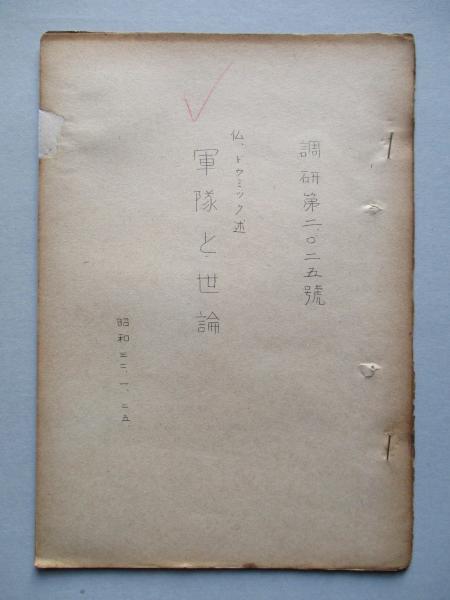 調研第二.〇二五號
仏、ドゥミック述
軍隊と世論
昭和三二、一、二五